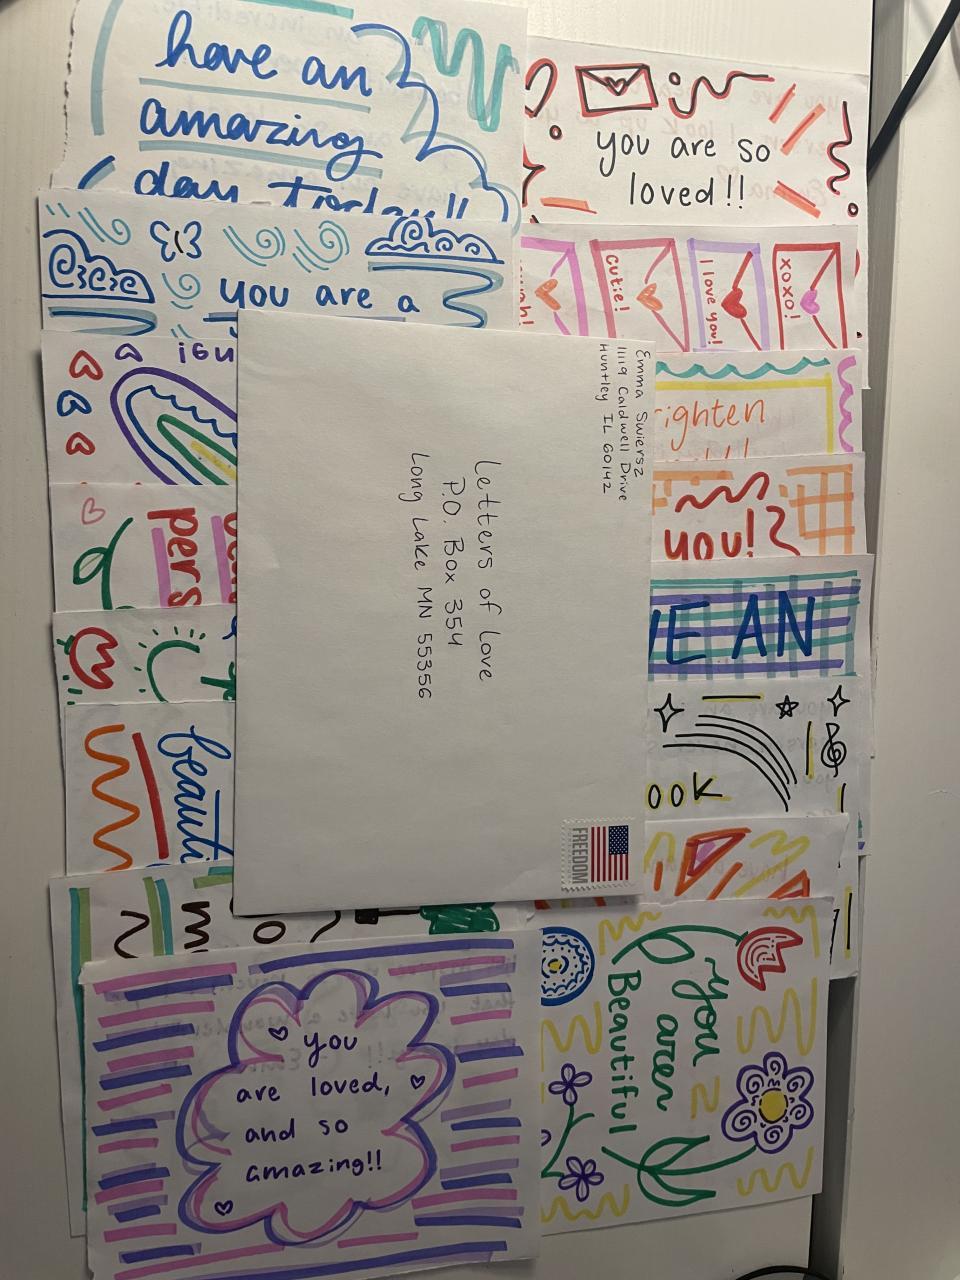 have an
amazing
day today!!
you are so
loved!!
you are a
cutie!
I love you!
xoxo!
righten
you!
pers
E AN
beauti
OOK
Emma Swiersz
1119 Caldwell Drive
Huntley IL 60142
Letters of Love
P.O. Box 354
Long Lake MN 55356
FREEDOM
you
are loved,
and so
amazing!!
you
are
Beautiful